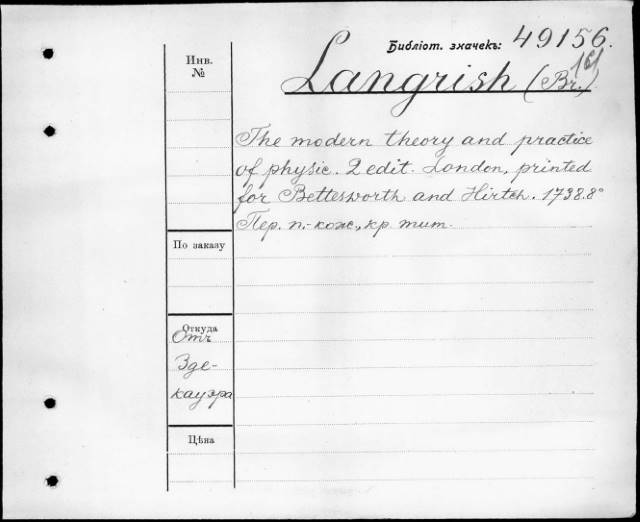 Библіот. значекъ: 49156.
161
Инв.
№
Langrish (Br.)
The modern theory and practice
of physic. 2 edit. London, printed
for Bettesworth and Hirtch. 1738. 8°
Пер. п.-кож., кр. тит.
По заказу
Откуда
Отъ
Зде-
кауэра
Цѣна